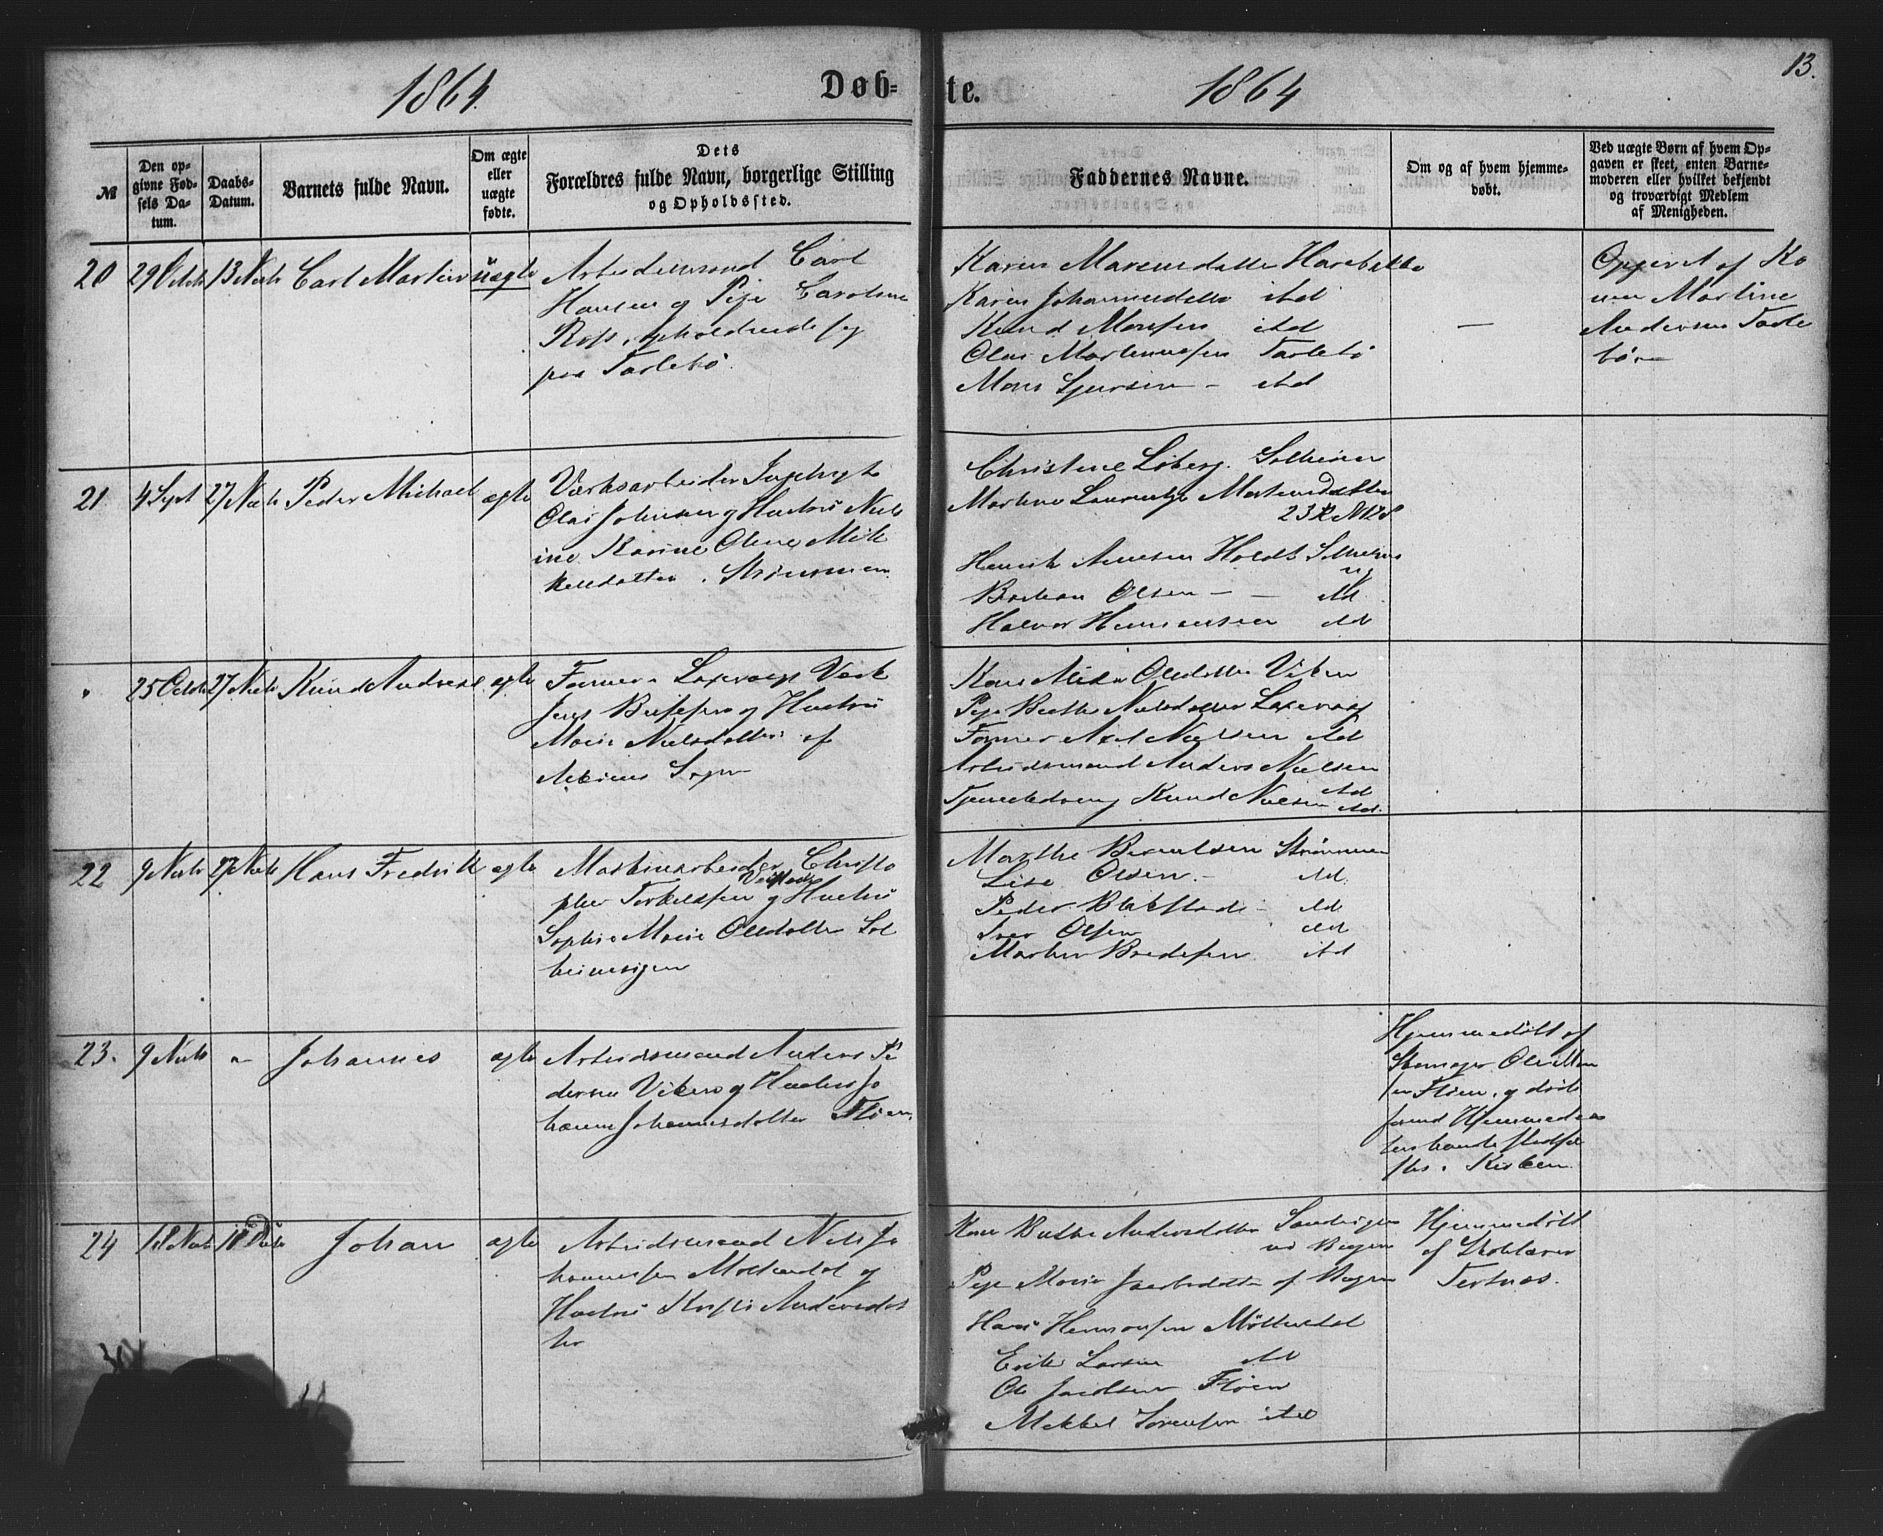 13.
1864.
Døb-
te.
1864
№
Den op-
givne Fød-
sels Da-
tum.
Daabs-
Datum.
Barnets fulde Navn.
Om ægte
eller
uægte
fødte.
Dets
Forældres fulde Navn, borgerlige Stilling
og Opholdssted.
Faddernes Navne.
Om og af hvem hjemme-
døbt.
Ved uægte Børn af hvem Op-
gaven er skeet, enten Barne-
moderen eller hvilket bekjendt
og troværdigt Medlem
af Menigheden.
20
29 Octob
13 Novb
Carl Martin
uægte
Arbeidsmand Carl
Hansen og Pige Caroline
opholdende sig
paa Tarlebø.
Karen
Karen Johannesdatter itd
Knud Monsen itd
Olai Martinussen Tarlebø
Mons Sjursen - itd
—
Opgivet af Ko
nen Martine
Andersen Tarle
bø
21
4 Sept
27 Novb
Peder Michael
ægte
Værksarbeider
Olai Johnsen og Hustru Nels
ine Karine Oline Mik
kelsdatter. Strømmen
Christine Loberg. Solheim
Martine Laurentze Mortensdatter
Henrik Holdt
Olsen - - itd
Halvor itd
"
25 Octob
27 Novb
Knud Andreas
ægte
Former Laxevaag Værk
Jens og Hustru
Marie Nielsdatter af
Sogn
Kari Olsdatter Viken
Pige Berthe Nielsdatter Laxevaag
Former Axel Nielsen itd
Arbeidsmand Anders Nielsen
itd
Tjenestedreng Knud Nielsen itd.
22
9 Novb
27 Novb
Hans Fredrik
ægte
Maskinarbeider Christo
pher Terkelsen og Hustru
Sophie Marie Olsdatter Sol
heimsvigen
Marthe Berentsen Strømmen
Lise Olsen - itd.
Peder Blakstad - itd
Iver Olsen itd
Morten Bredesen itd
23.
9 Novb
"
Johannes
ægte
Arbeidsmand Anders Pe
dersen Viken og Hustru Jo
hanne Johannesdatter Fløen.
Hjemmedøbt af
Skomager Ole
sen Fløen, og død
førend Hjemmedaa
ben kunde stadfæ
stes i Kirken
24
18 Novb
18 Decb
Johan
ægte
Arbeidsmand Nils Jo
hannessen Møllendal og
Hustru Andersdat
ter
Kari Berthe Andersdatter Sandvigen
ved Bergen
Pige Marie af Bergen
Hans Hermansen Møllendal
Erik Larsen itd
Ole Jacobsen Fløen
Mikkel Sørensen itd
Hjemmedøbt
af Skolelærer
Tertnæs.